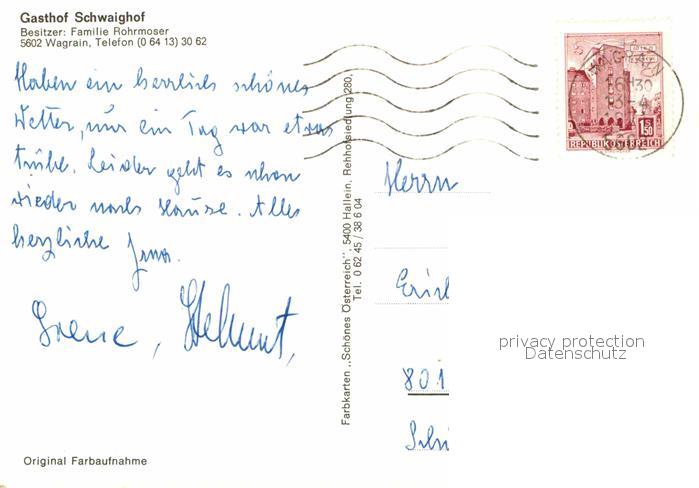 Gasthof Schwaighof
Besitzer: Familie Rohrmoser
5602 Wagrain, Telefon (0 64 13) 30 62
Haben ein herrlich schönes
Wetter, nur ein Tag war etwas
trübe. Leider geht es schon
wieder nach Hause. Alles
herzliche
Helmut,
Original Farbaufnahme
Farbkarten „Schönes Österreich", 5400 Hallein, Rehhofsiedlung 280,
Tel. 0 62 45 / 38 6 04
1.50
REPUBLIK ÖSTERREICH
Herrn
801
privacy protection
Datenschutz